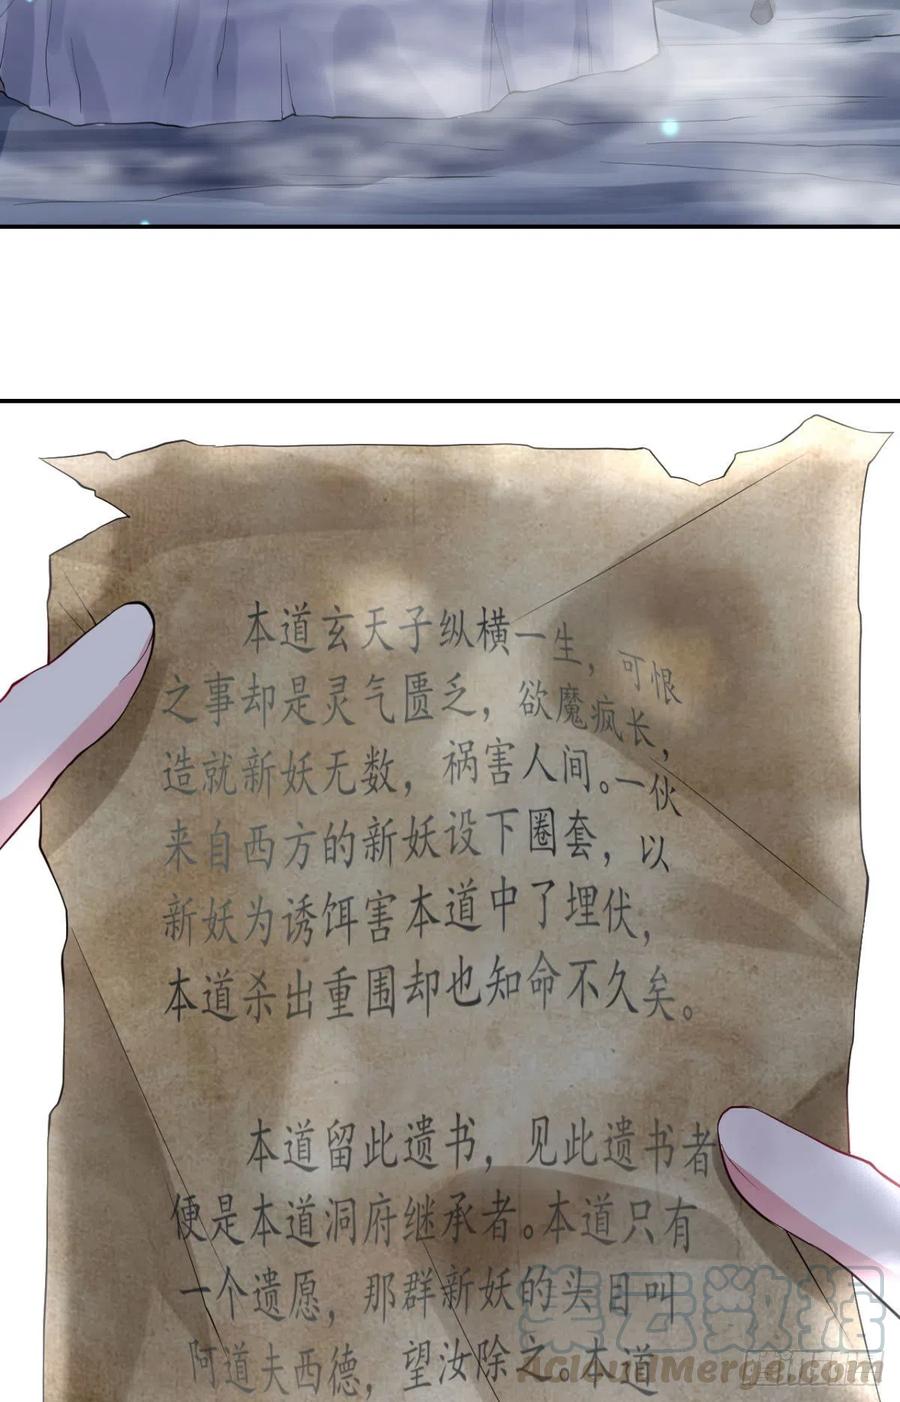 本道玄天子纵横一生，可恨
之事却是灵气匮乏，欲魔疯长，
造就新妖无数，祸害人间。一伙
来自西方的新妖设下圈套，以
新妖为诱饵害本道中了埋伏，
本道杀出重围却也知命不久矣。
本道留此遗书，见此遗书者
便是本道洞府继承者。本道只有
一个遗愿，那群新妖的头目叫
阿道夫西德，望汝除之。本道
集云数据
ACloudMerge.com